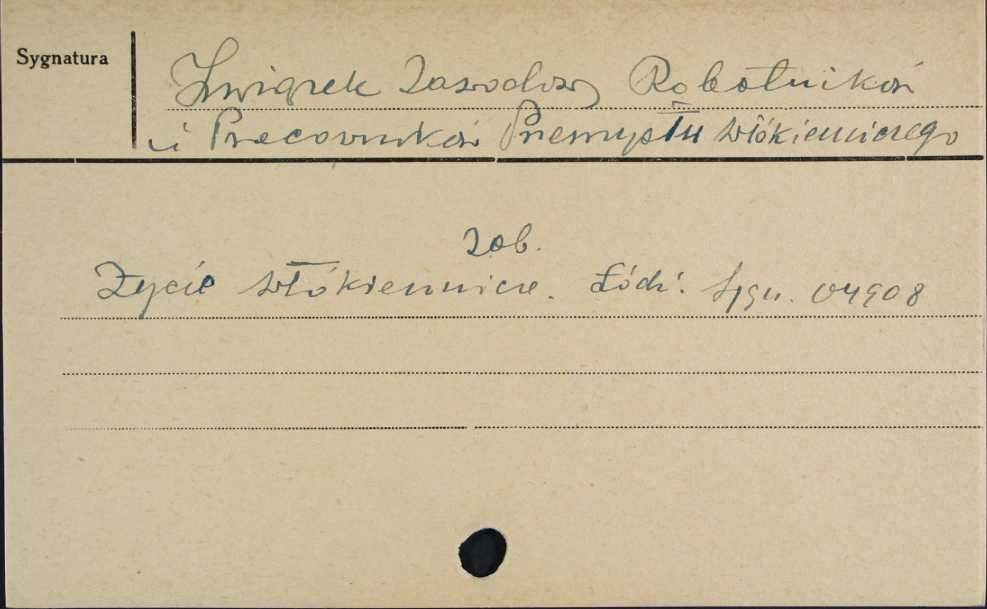 Sygnatura
Związek Zawodowy Robotników
i Pracowników Przemysłu Włókienniczego
Zob.
Życie Włókiennicze. Łódź. Sygn. 04908